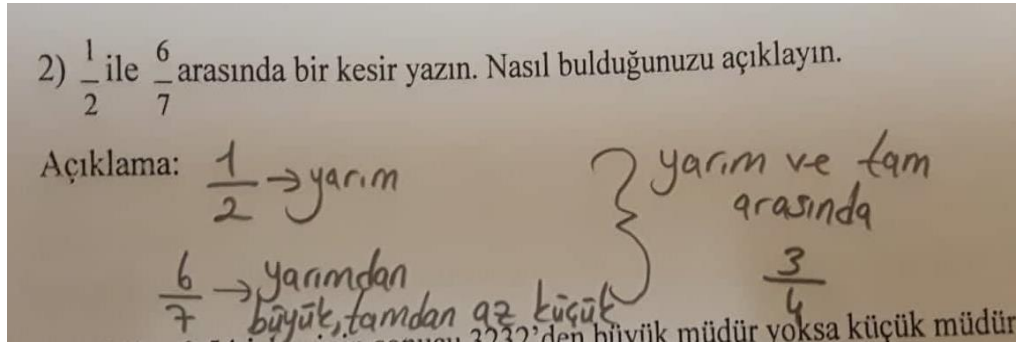 2) 1/2 ile 6/7 arasında bir kesir yazın. Nasıl bulduğunuzu açıklayın.
Açıklama: 1/2 → yarım
6/7 → yarımdan
büyük, tamdan az küçük
} yarım ve tam
arasında
3/4
3232'den büyük müdür yoksa küçük müdür